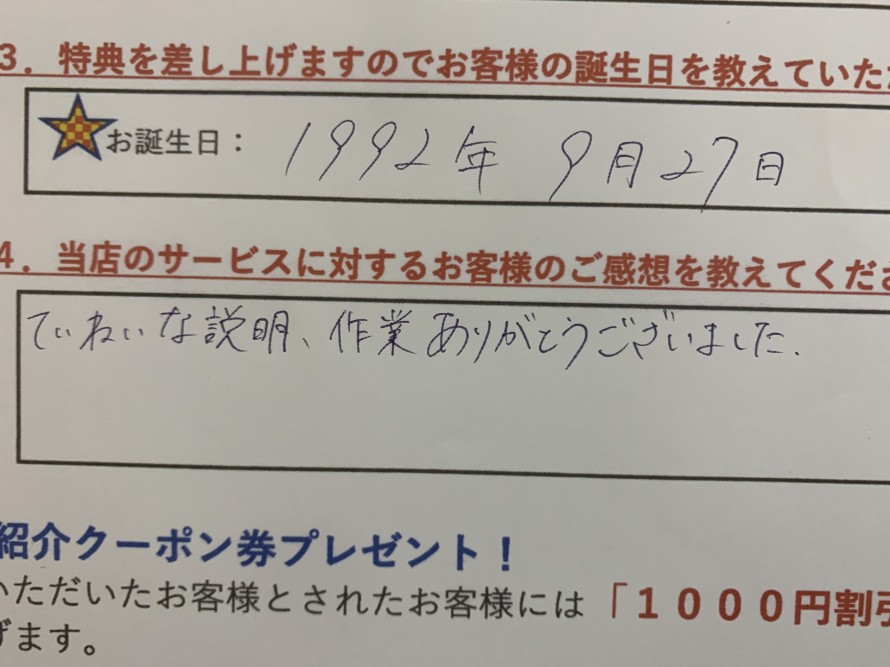 3．特典を差し上げますのでお客様の誕生日を教えていた
お誕生日： 1992年 9月27日
4．当店のサービスに対するお客様のご感想を教えてくださ
ていねいな説明、作業ありがとうございました.
紹介クーポン券プレゼント！
いただいたお客様とされたお客様には「１０００円割引
げます。